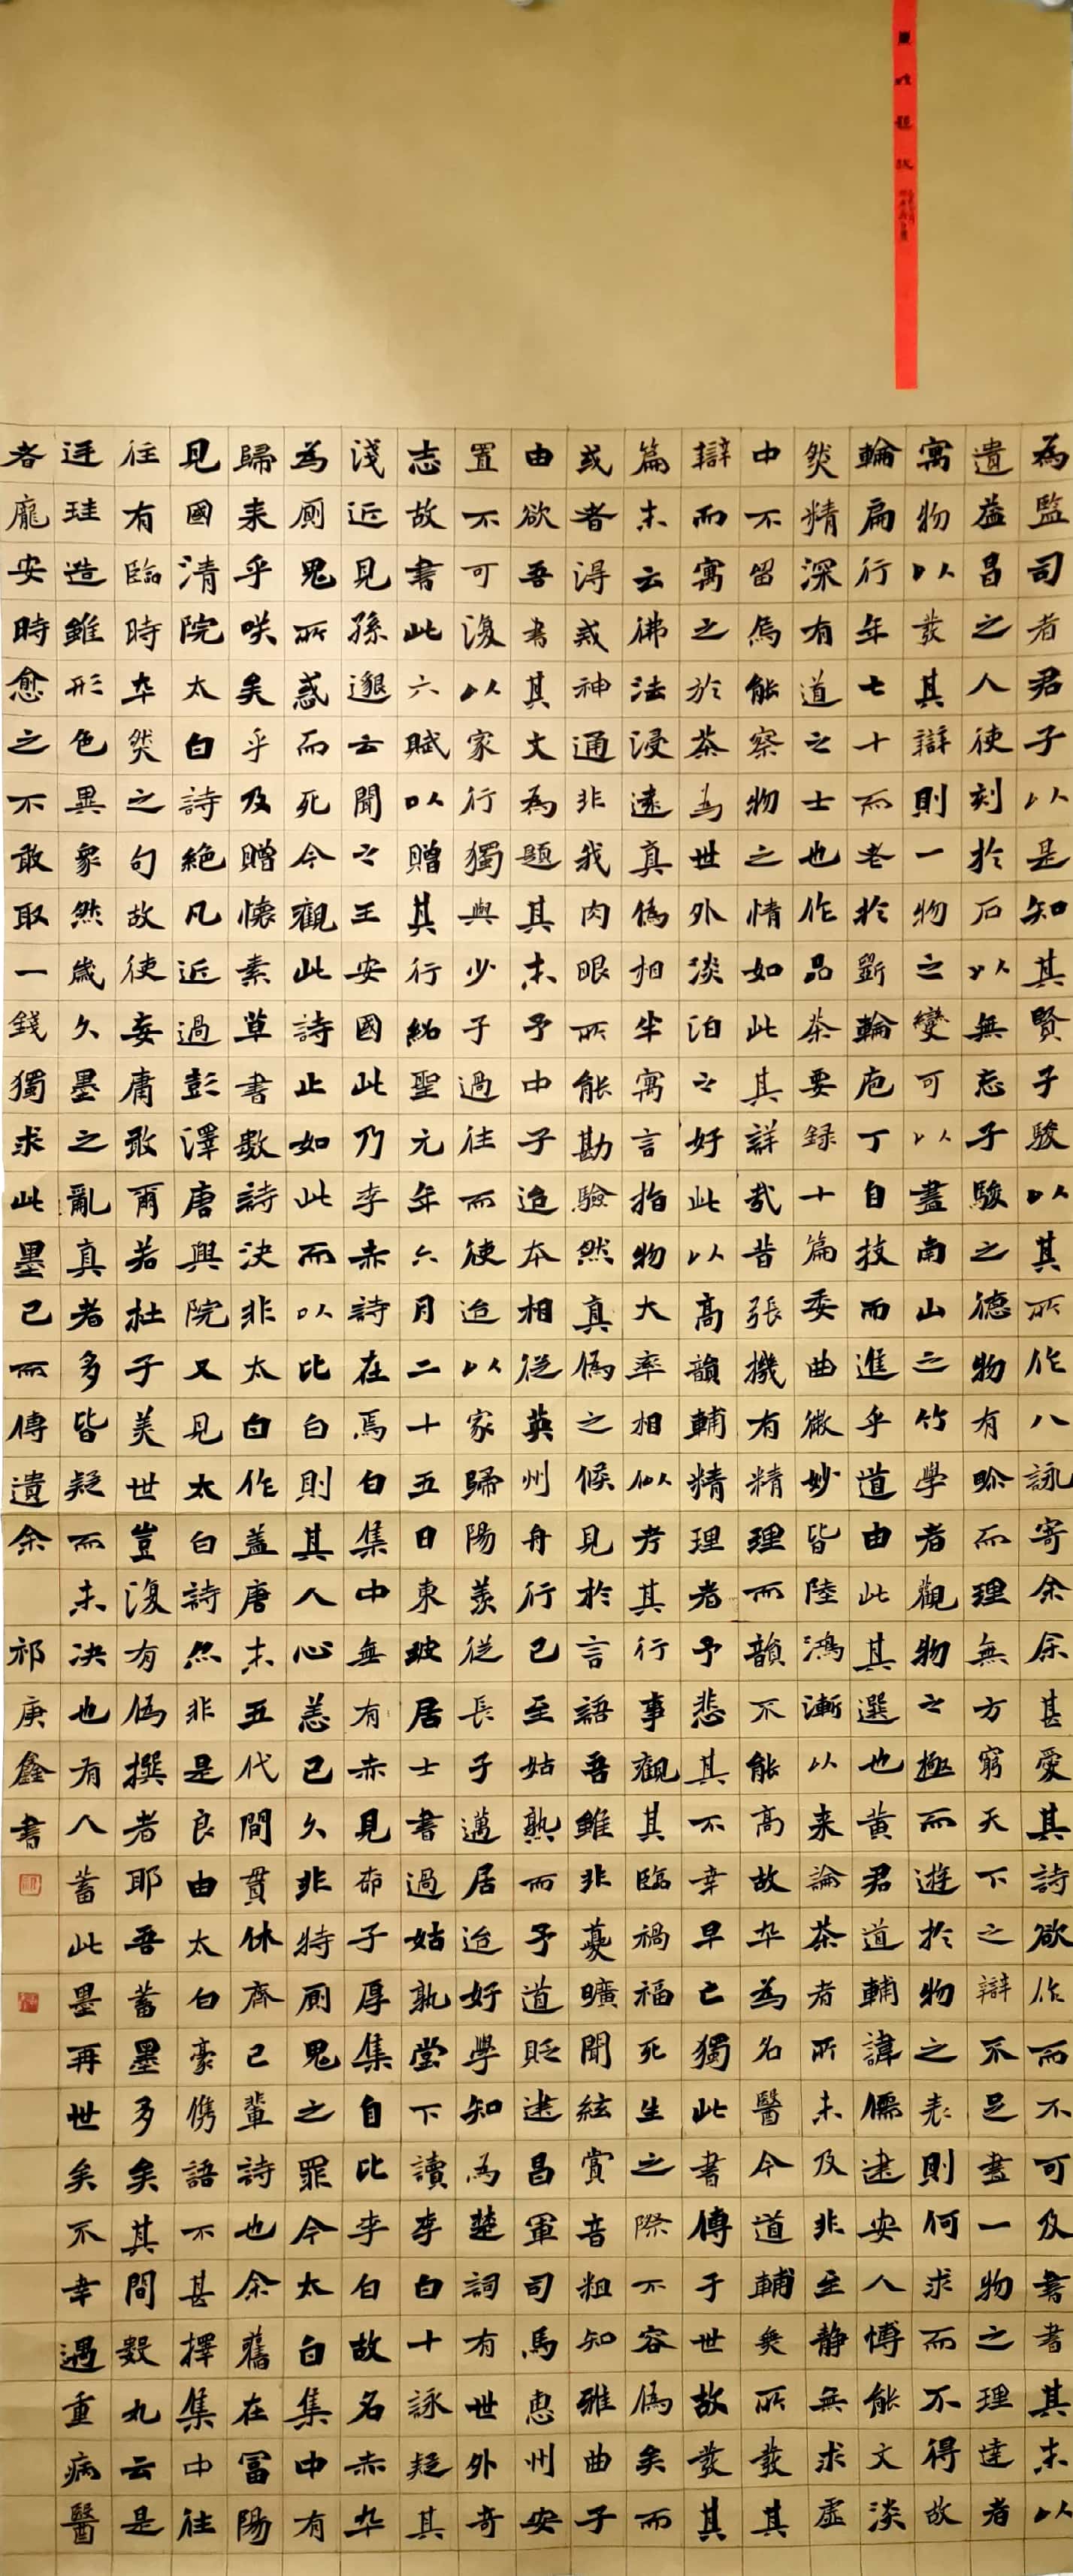 為監司者君子以是知其賢子駿以其所作八詠寄余余甚愛其詩欲作而不可及書者其末以
遺益昌之人使刻於石以無忘子駿之德物有畛而理無方窮天下之辯不足盡一物之理達者
寓物以發其辯則一物之變可以盡南山之竹學者觀物之極而遊於物之表則何求而不得故
輪扁行年七十而老於斲輪庖丁自技而進乎道由此其選也黃君道輔諱儒建安人博能文淡
然精深有道之士也作品茶要録十篇委曲微妙皆陸鴻漸以来論茶者所未及非至静無求虛
中不留焉能察物之情如此其詳哉昔張機有精理而韻不能高故卒為名醫今道輔無所發其
辯而寓之於茶為世外淡泊之好此以高韻輔精理者予悲其不幸早亡獨此書傳于世故發其
篇末云佛法浸遠真偽相半寓言指物大率相似考其行事觀其臨禍福死生之際不容偽矣而
或者得戒神通非我肉眼所能勘驗然真偽之候見於言語吾雖非夔曠聞絃賞音粗知雅曲子
由欲吾書其文為題其末予中子迨本相從英州舟行已至姑熟而予道貶建昌軍司馬惠州安
置不可復以家行獨與少子過往而使迨以家歸陽羨從長子邁居迨好學知為楚詞有世外奇
志故書此六賦以贈其行紹聖元年六月二十五日東坡居士書過姑孰堂下讀李白十詠疑其
淺近見孫邈云聞之王安國此乃李赤詩在焉白集中無有赤見柳子厚集自比李白故名赤卒
為厠鬼所惑而死今觀此詩止如此而以比白則其人心恙已久非特厠鬼之罪今太白集中有
歸来乎咲矣乎及贈懷素草書數詩決非太白作蓋唐末五代間貫休齊己輩詩也余舊在富陽
見國清院太白詩絕凡近過彭澤唐興院又見太白詩亦非是良由太白豪儁語不甚擇集中往
往有臨時卒然之句故使妄庸敢爾若杜子美世豈復有偽撰者耶吾蓄墨多矣其間數丸云是
廷珪造雖形色異眾然歲久墨之亂真者多皆疑而未決也有人蓄此墨再世矣不幸遇重病醫
者龐安時愈之不敢取一錢獨求此墨已而傳遺余 祁庚鑫書